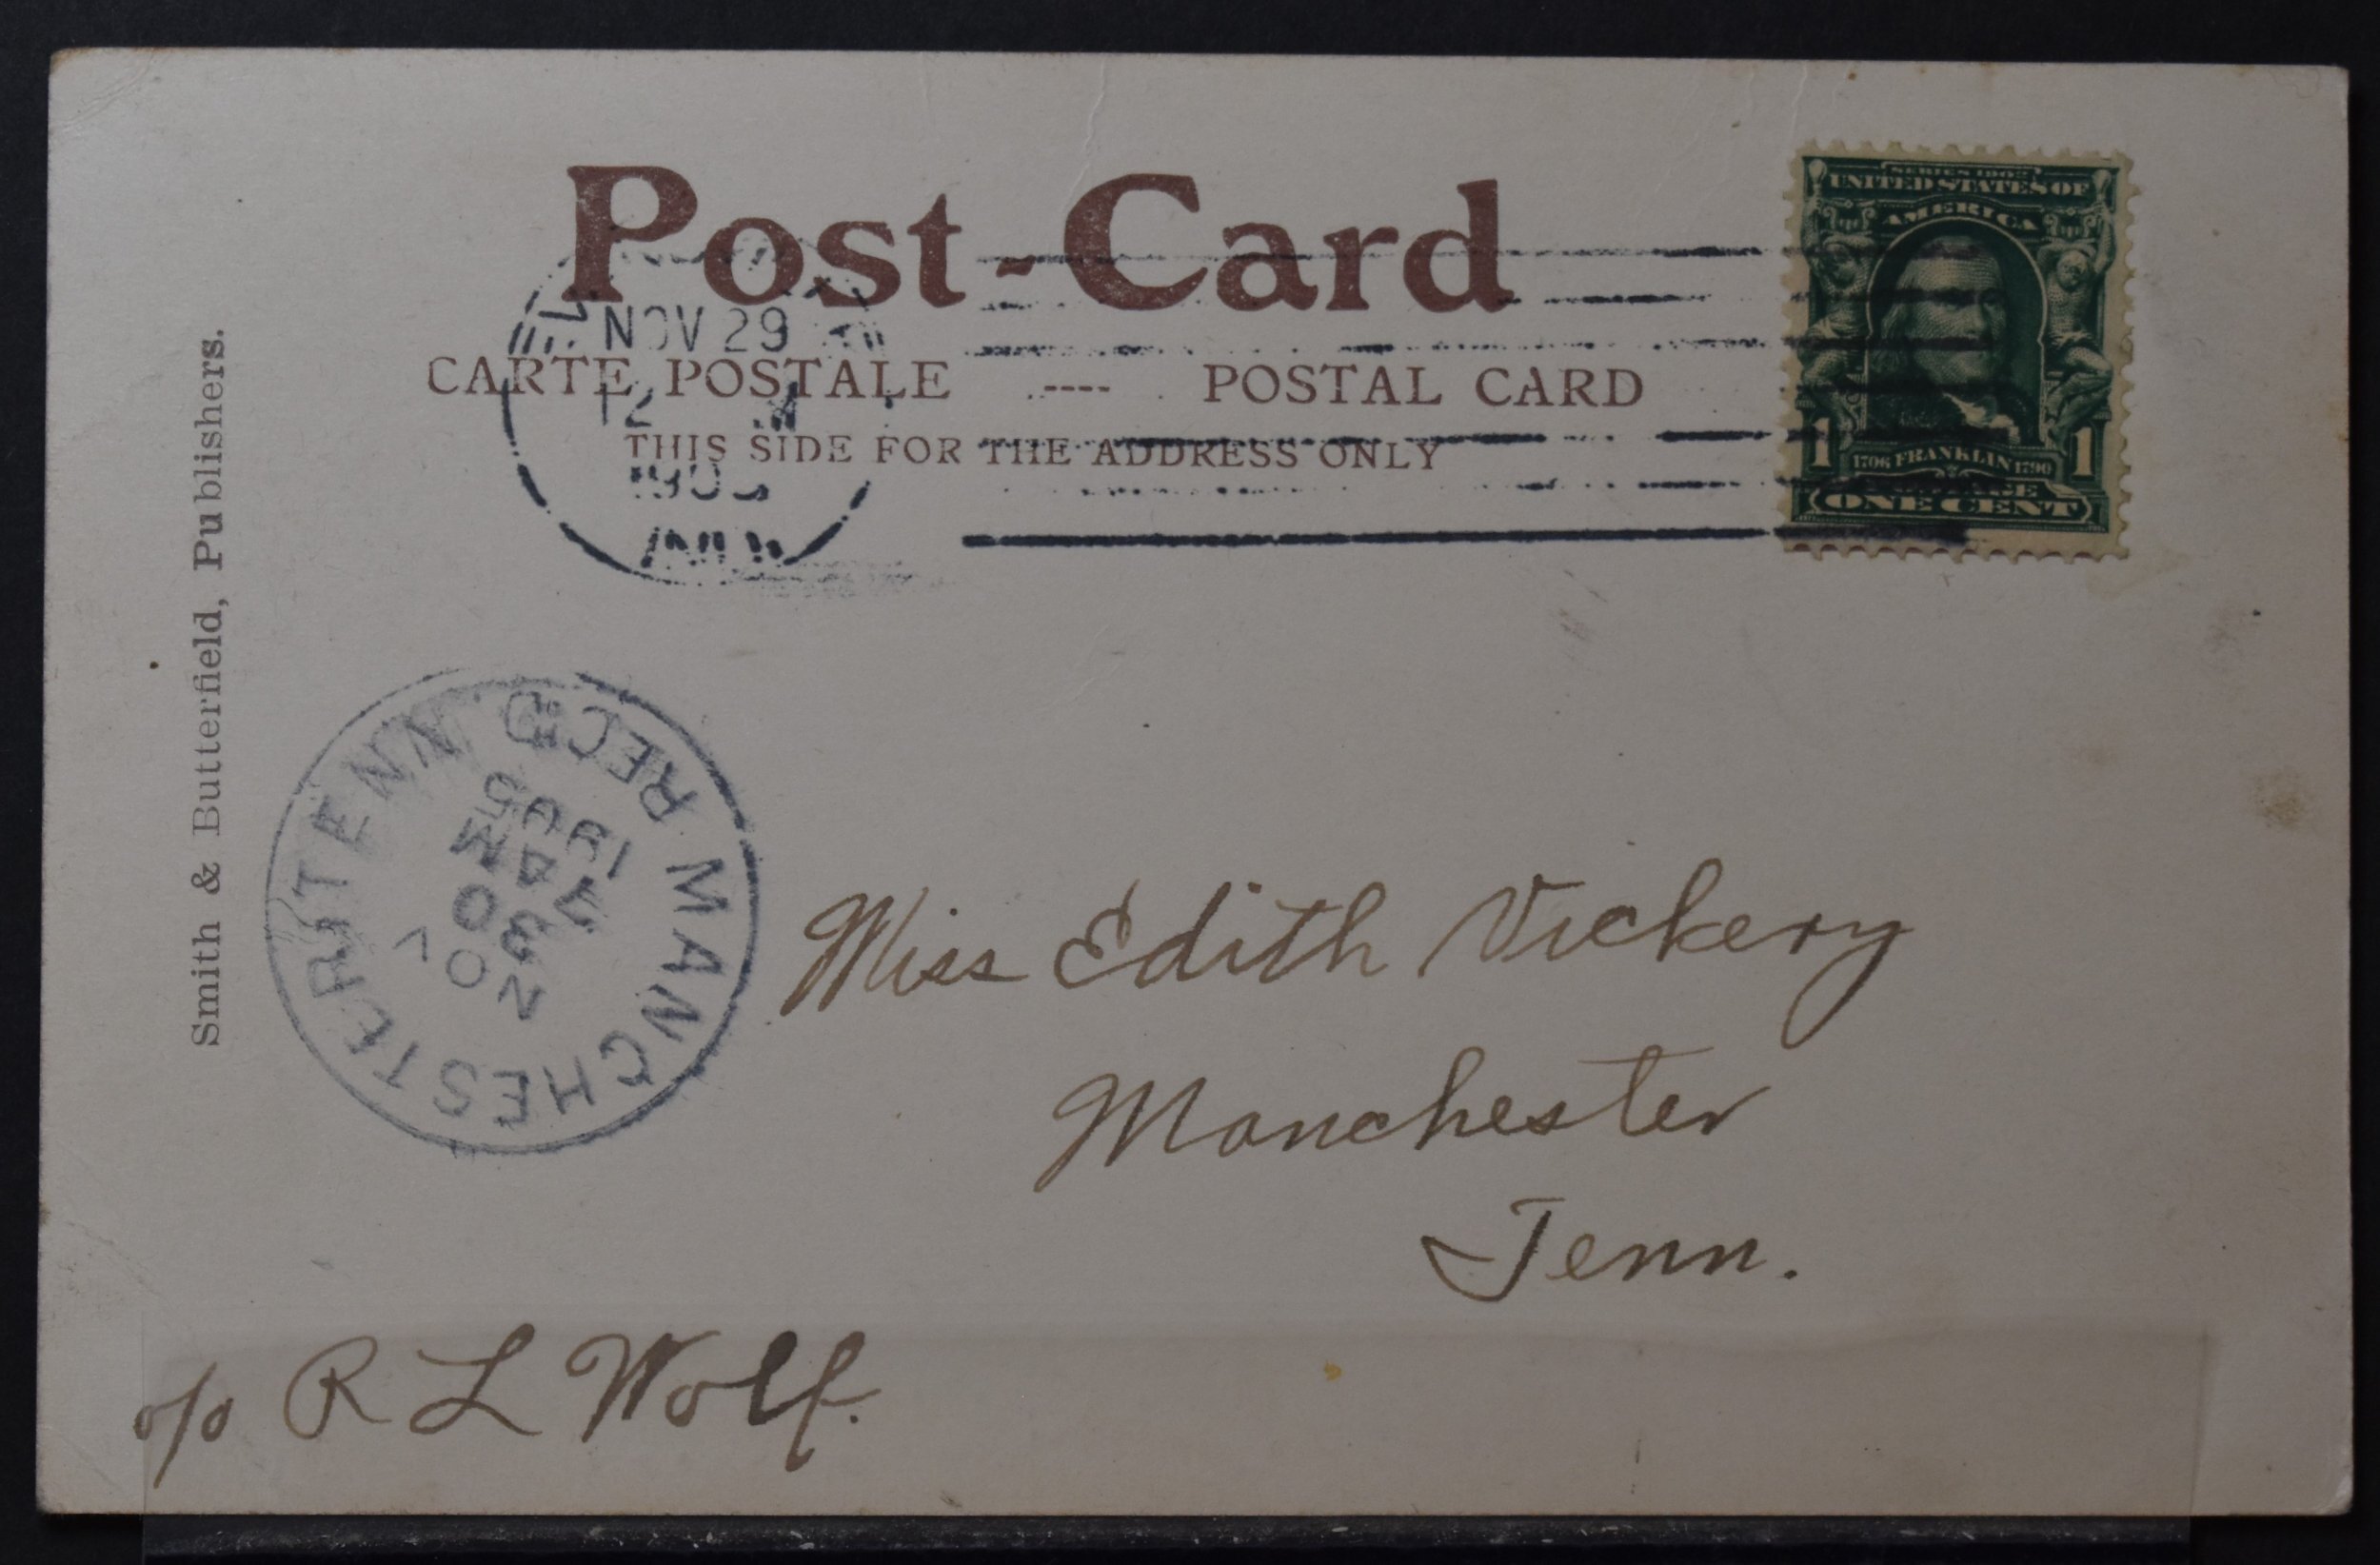 Post-Card
CARTE POSTALE ---- POSTAL CARD
THIS SIDE FOR THE ADDRESS ONLY
NOV 29
12 M
SERIES 1902
UNITED STATES OF
AMERICA
1706 FRANKLIN 1790
1 1
POSTAGE
ONE CENT
Smith & Butterfield, Publishers.
MANCHESTER TENN. REC'D.
NOV
30
3 AM
1905
Miss Edith Vickery
Manchester
Tenn.
c/o R L Wolf.